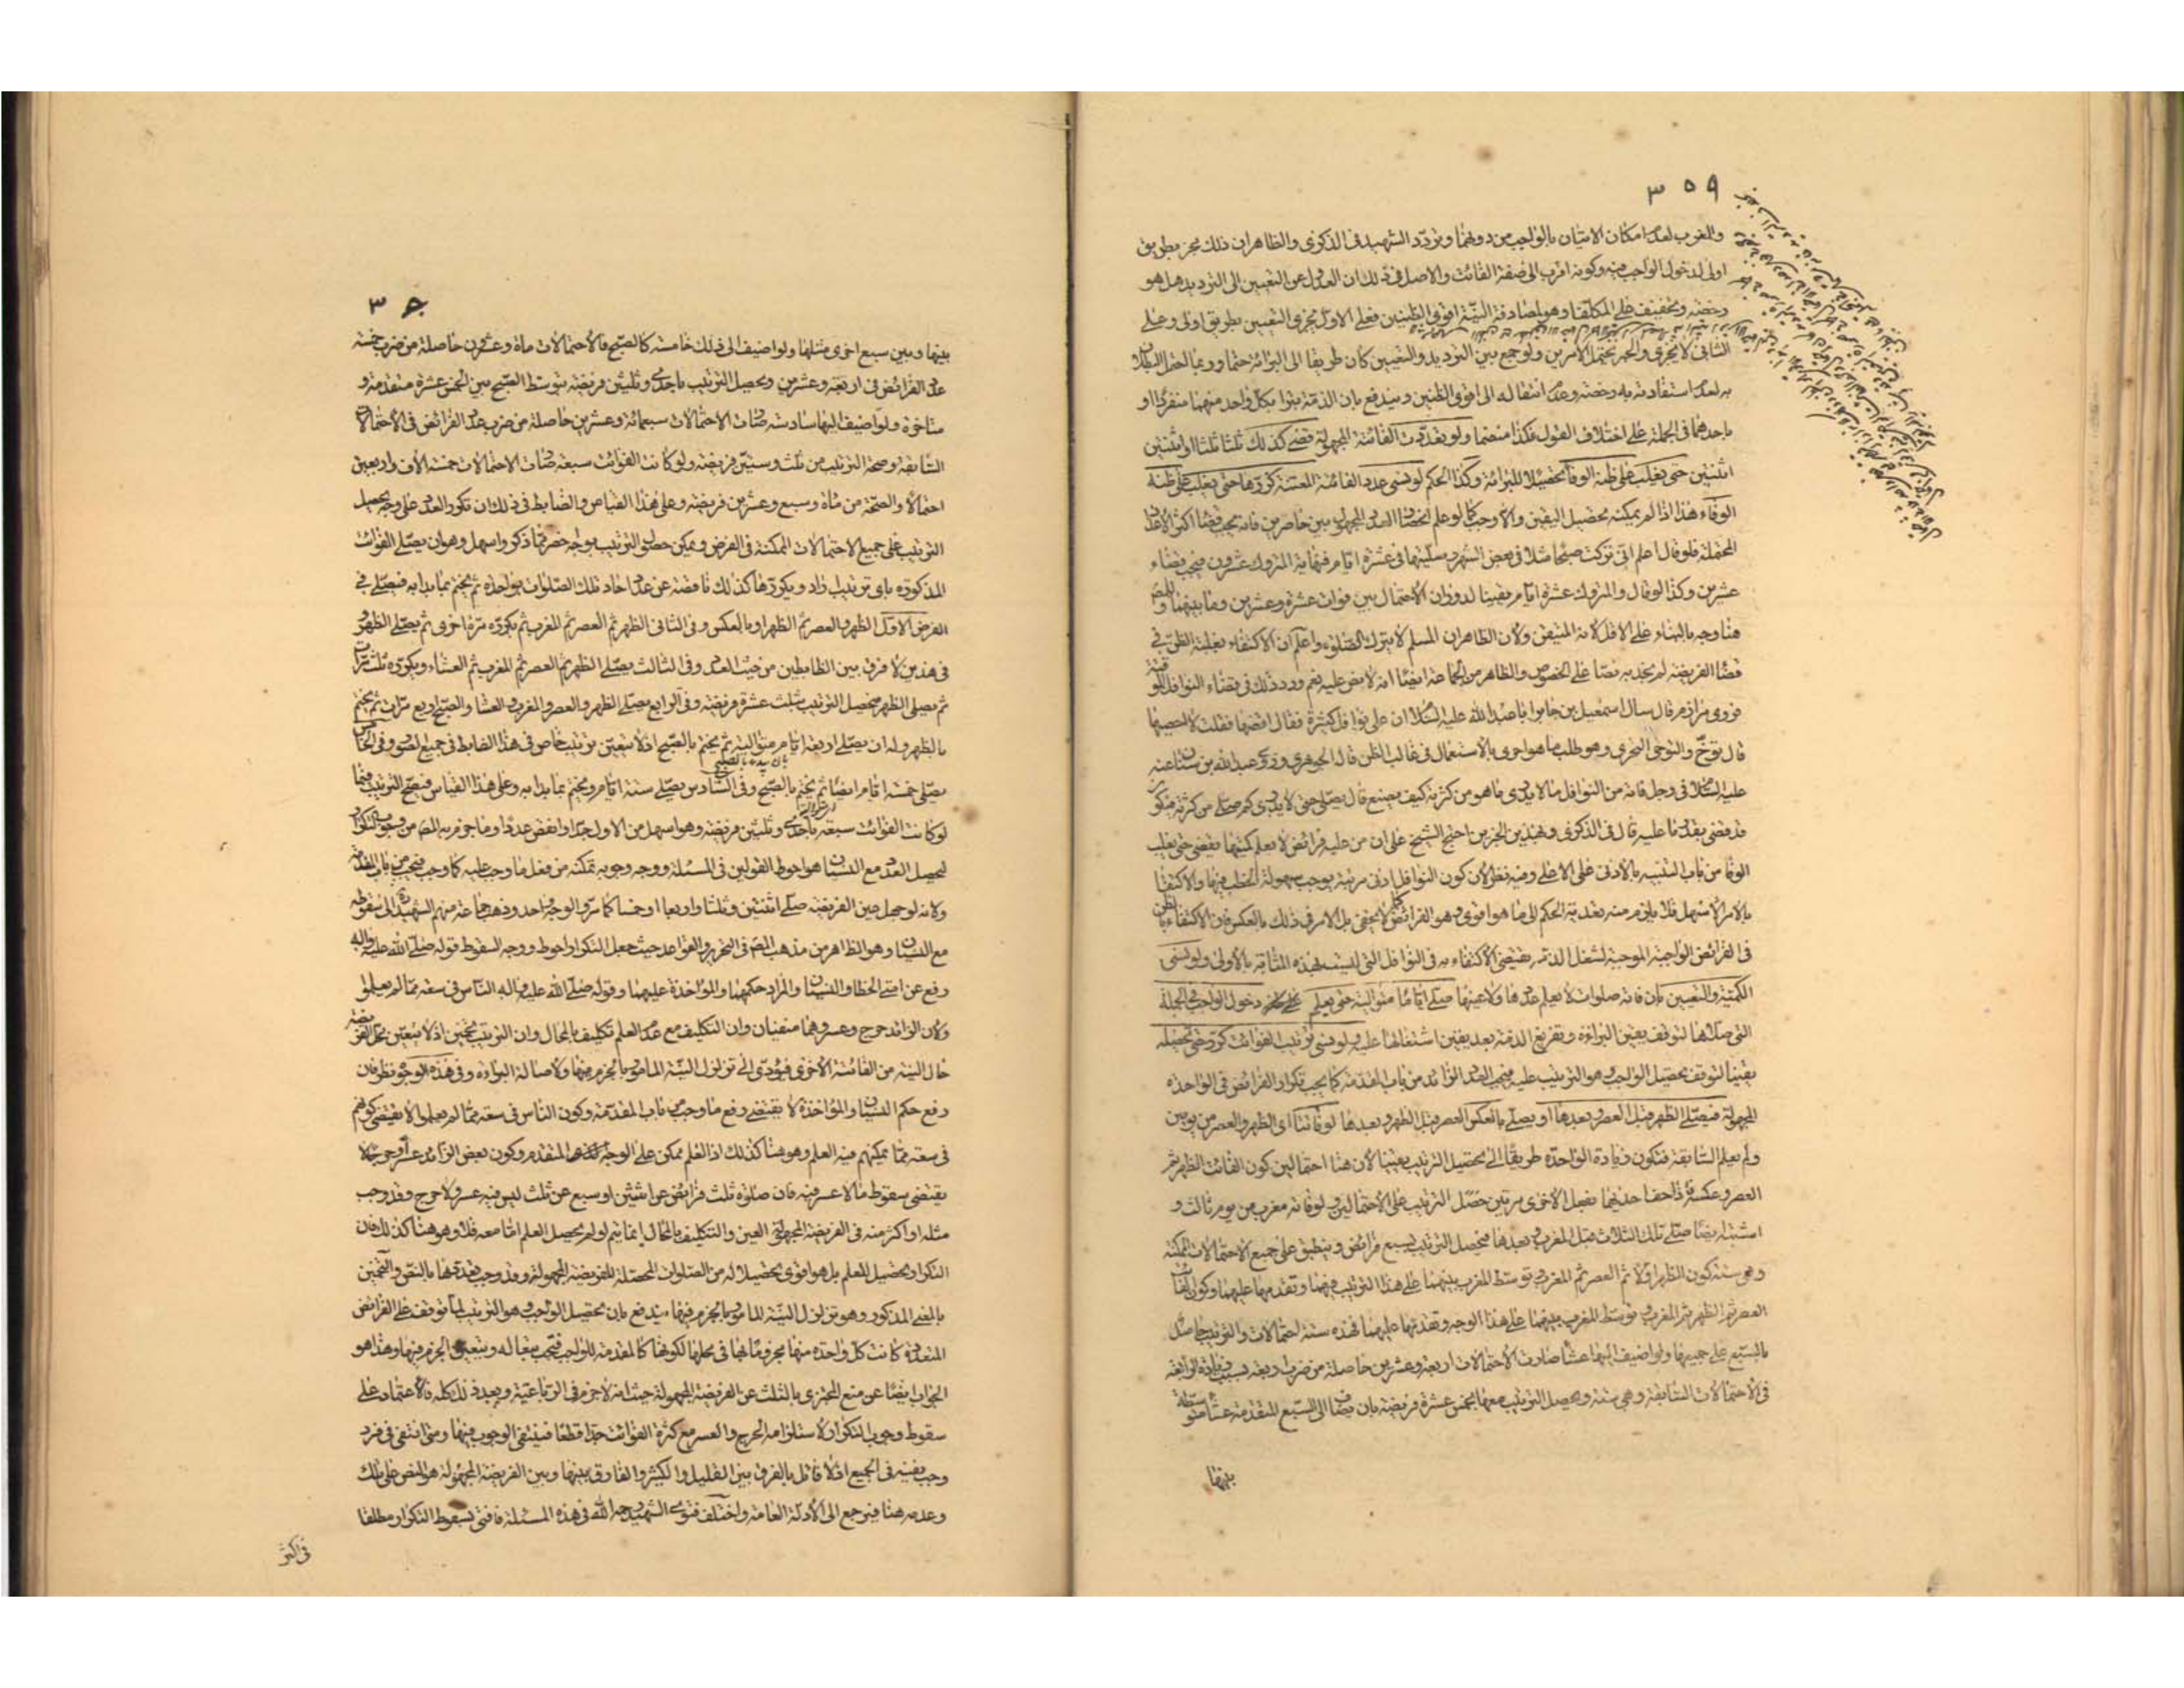 ٣٥٩
والمغرب لعدم امكان الاتيان بالواجب من دونهما وتردد الشهيد في الذكرى والظاهر ان ذلك مجز بطريق
اولى لدخول الواجب فيه وكونه اقرب الى صفة الفائت والاصل في ذلك ان العدول عن التعيين الى الترديد هل هو
رخصة وتخفيف على المكلف او هو لمصادفة النية اقوى الظنين فعلى الاول يجزى التعيين بطريق اولى وعلى
الثانى لا يجزى والخبر يحتمل الامرين ولو جمع بين الترديد والتعيين كان طريقا الى البرائة حتما وربما احتمل البطلان
به لعدم استفادته به رخصة وعدم انتقاله الى اقوى الظنين ويندفع بان الذمة تبرا بكل واحد منهما منفردا او
باحدهما في الجملة على اختلاف القول فكذا منضما ولو تعددت الفائتة المجهولة قضى كذلك ثلثا ثلثا او اثنتين
اثنتين حتى يغلب على ظنه الوفا تحصيلا للبرائة وكذا الحكم لو نسى عدد الفائتة المعينة كررها حتى يغلب على ظنه
الوفاء هذا اذا لم يمكنه تحصيل اليقين والا وجب كما لو علم انحصار العدد المجهول بين حاصرين فانه يجب قضا اكثر الاعداد
المحتملة فلو قال اعلم انى تركت صبحا مثلا في بعض الشهر وصليتها في عشرة ايام فنهاية المتروك عشرون فيجب قضاء
عشرين وكذا لو قال والمتروك عشرة ايام يقينا لدوران الاحتمال بين فوات عشرة وعشرين وما بينهما وللمص
هنا وجه بالبناء على الاقل لانه المتيقن ولان الظاهر ان المسلم لا يترك الصلوة واعلم ان الاكتفاء بغلبة الظن في
قضا الفريضة لم نجد به نصا على الخصوص والظاهر من الجماعة ايضا انه لا نص عليه نعم ورد ذلك في قضاء النوافل الموقتة
فروى مرازم قال سال اسمعيل بن جابر ابا عبد الله عليه السلام ان على نوافل كثيرة فقال اقضها فقلت لا احصيها
قال توخ والتوخى التحرى وهو طلب ما هو احرى بالاستعمال في غالب الظن قاله الجوهرى وروى عبد الله بن سنان عنه
عليه السلام في رجل فاته من النوافل ما لا يدرى ما هو من كثرته كيف يصنع قال يصلى حتى لا يدرى كم صلى من كثرته فيكون
قد قضى بقدر ما عليه قال في الذكرى وبهذين الخبرين احتج الشيخ على ان من عليه فرائض لا يعلم كميتها يقضى حتى يغلب
الوفا من باب التنبيه بالادنى على الاعلى وفيه نظر لان كون النوافل ادنى مرتبة يوجب سهولة الخطب فيها والاكتفا
بالامر الاسهل فلا يلزم منه تعدية الحكم الى ما هو اقوى وهو الفرائض كما لا يخفى بل الامر في ذلك بالعكس فان الاكتفاء بالظن
في الفرائض الواجبة الموجبة لشغل الذمة يقتضى الاكتفاء به في النوافل التى ليست بهذه المثابة بالاولى ولو نسى
الكمية والتعيين بان فاته صلوات لا يعلم عددها ولا عينها صلى اياما متوالية حتى يعلم دخول الواجب في الجملة
التى صلاها لتوقف يقين البراءة وتفريغ الذمة بعد يقين اشتغالها عليه ولو نسى ترتيب الفوائت كرر حتى يحصله
يقينا لتوقف تحصيل الواجب وهو الترتيب عليه فيجب العدد الزائد من باب المقدمة كما يجب تكرار الفرائض في الواحدة
المجهولة فيصلى الظهر قبل العصر وبعدها او يصلى بالعكس العصر قبل الظهر وبعدها لو فاتتا اى الظهر والعصر من يومين
ولم يعلم السابقة فتكون زيادة الواحدة طريقا الى تحصيل الترتيب يقينا لان هنا احتمالين كون الفائت الظهر ثم
العصر وعكسه فاذا حف احديهما بفعل الاخرى مرتين حصل الترتيب على الاحتمالين ولو فاته مغرب من يوم ثالث و
اشتبه ايضا صلى تلك الثلاث قبل المغرب وبعدها فيحصل الترتيب بسبع فرائض وينطبق على جميع الاحتمالات الممكنة
وهى ستة كون الظهر اولا ثم العصر ثم المغرب وتوسط المغرب بينهما على هذا الترتيب فيهما وتقدمها عليهما وكون الفائت
العصر ثم الظهر ثم المغرب وتوسط المغرب بينهما على هذا الوجه وتقدمها عليهما فهذه ستة احتمالات والترتيب حاصل
بالسبع على جميعها ولو اضيف اليها عشا صارت الاحتمالات اربعة وعشرين حاصلة من ضرب اربعة بسبب زيادة الرابعة
في الاحتمالات السابقة وهى ستة ويحصل الترتيب معها بخمس عشرة فريضة بان يضاف الى السبع المتقدمة عشا متوسطة
بينها
بينها وبين سبع اخرى مثلها ولو اضيف الى ذلك خامسة كالصبح فالاحتمالات ماة وعشرون حاصلة من ضرب خمسة
عدد الفرائض في اربعة وعشرين ويحصل الترتيب باحدى وثلثين فريضة بتوسط الصبح بين الخمس عشرة متقدمة و
متاخرة ولو اضيف اليها سادسة صارت الاحتمالات سبعمائة وعشرين حاصلة من ضرب عدد الفرائض في الاحتمالات
السابقة وصحة الترتيب من ثلث وستين فريضة ولو كانت الفوائت سبعة صارت الاحتمالات خمسة الاف واربعين
احتمالا والصحة من ماة وسبع وعشرين فريضة وعلى هذا القياس والضابط في ذلك ان تكرر العدد على وجه يحصل
الترتيب على جميع الاحتمالات الممكنة في الفرض ويمكن حصول الترتيب بوجه اخصر مما ذكر واسهل وهو ان يصلى الفوائت
المذكورة باى ترتيب اراد ويكررها كذلك ناقصة عن عدد احاد تلك الصلوات بواحدة ثم يختم بما بدا به فيصلى في
الفرض الاول الظهر والعصر ثم الظهر او بالعكس وفى الثانى الظهر ثم العصر ثم المغرب ثم يكرره مرة اخرى ثم يصلى الظهر و
في هذين لا فرق بين الضابطين من حيث العدد وفى الثالث يصلى الظهر ثم العصر ثم المغرب ثم العشاء ويكرره ثلث مرات
ثم يصلى الظهر فيحصل الترتيب بثلث عشرة فريضة وفى الرابع يصلى الظهر والعصر والمغرب والعشا والصبح اربع مرات ثم يختم
بالظهر وله ان يصلى اربعة ايام متوالية ثم يختم بالصبح اذ لا يتعين ترتيب خاص في هذا الضابط في جميع الصور وفى الخامس
يصلى خمسة ايام ايضا ثم يختم بالصبح وفى السادس يصلى ستة ايام ويختم بما بدا به وعلى هذا القياس فيصح الترتيب فيما
لو كانت الفوائت سبعة باحدى وثلثين فريضة وهو اسهل من الاول جدا وانقص عددا وما جزم به المص من وجوب التكرار
لتحصيل العدد مع النسيان هو احوط القولين في المسئلة ووجه وجوبه تمكنه من فعل ما وجب عليه كما وجب فيجب من باب المقدمة
ولانه لو جهل عين الفريضة صلى اثنتين وثلثا واربعا او خمسا كما مر والوجه واحد وذهب جماعة منهم الشهيد ره الى سقوطه
مع النسيان وهو الظاهر من مذهب المص في التحرير والقواعد حيث جعل التكرار احوط ووجه السقوط قوله صلى الله عليه واله
رفع عن امتى الخطا والنسيان والمراد حكمهما والمؤاخذة عليهما وقوله صلى الله عليه واله الناس في سعة مما لم يعلموا
ولان الزائد حرج وعسر وهما منفيان وان التكليف مع عدم العلم تكليف بالمحال وان الترتيب تخمين اذ لا يتعين محل الفريضة
حال النية من الفائتة الاخرى فيؤدى الى تزلزل النية المامور بالجزم فيها ولاصالة البراءة وفى هذه الوجوه نظر فان
رفع حكم النسيان والمؤاخذة لا يقتضى رفع ما وجب من باب المقدمة وكون الناس في سعة مما لم يعلموا لا يقتضى كونهم
في سعة مما يمكنهم فيه العلم وهو هنا كذلك اذ العلم ممكن على الوجه المتقدم وكون بعض الزائد عسرا وحرجا لا
يقتضى سقوط ما لا عسر فيه فان صلوة ثلث فرائض عن اثنتين او سبع عن ثلث ليس فيه عسر ولا حرج وقد وجب
مثله او اكثر منه في الفريضة المجهولة العين والتكليف بالمحال انما يتم لو لم يحصل العلم اما معه فلا وهو هنا كذلك فان
التكرار تحصيل للعلم بل هو اقوى تحصيلا له من الصلوات المحصلة للفريضة المجهولة وقد وجب هذه هنا بالنص والتخمين
بالمعنى المذكور وهو تزلزل النية المامور بالجزم فيها يندفع بان تحصيل الواجب وهو الترتيب لما توقف على الفرائض
المتعددة كانت كل واحدة منها مجزوما بها في محلها لكونها كالمقدمة للواجب فتجب مقاله ويتعين الجزم فيها وهذا هو
الجواب ايضا عن منع المجتزى بالثلث عن الفريضة المجهولة حيث انه لا جزم في الرباعية وبعد ذلك كله فالاعتماد على
سقوط وجوب التكرار لاستلزامه الحرج والعسر مع كثرة الفوائت جدا قطعا فينتفى الوجوب فيها ومتى انتفى في فرد
وجب نفيه في الجميع اذ لا قائل بالفرق بين القليل والكثير والفارق بينها وبين الفريضة المجهولة هو النص على تلك
وعدمه هنا فيرجع الى الادلة العامة واختلف فتوى الشهيد رحمه الله في هذه المسئلة فافتى بسقوط التكرار مطلقا
في اكثر